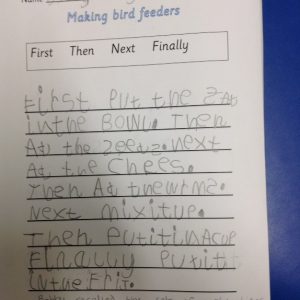 Name
Making bird feeders
First Then Next Finally
First put the
in the Bowl. Then
At the zeedz. next
At the chees.
Then At
Next mixitup.
Then putitinAcup
Finally putitt
in the Frit.